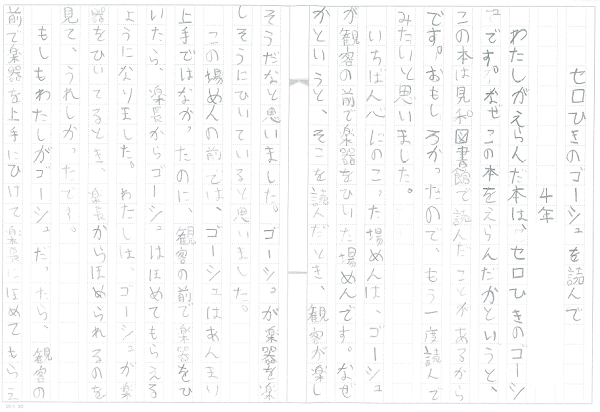 セロひきのゴーシュを読んで
4年
わたしがえらんだ本は、セロひきのゴーシ
ュです。なぜこの本をえらんだかというと、
この本は見れ図書館で読んだことがあるから
です。おもしろかったので、もう一度読んで
みたいと思いました。
いちばん心にのこった場めんは、ゴーシュ
が観客の前で楽器をひいた場めんです。なぜ
かというと、そこを読んだとき、観客が楽し
そうだなと思いました。ゴーシュが楽器を楽
しそうにひいていると思いました。
この場めんの前では、ゴーシュはあんまり
上手ではなかったのに、観客の前で楽器をひ
いたら、楽長からゴーシュはほめてもらえる
ようになりました。わたしは、ゴーシュが楽
器をひいてるとき、楽長からほめられるのを
見て、うれしかったです。
もしもわたしがゴーシュだったら、観客の
前で楽器を上手にひけて楽長にほめてもらえ